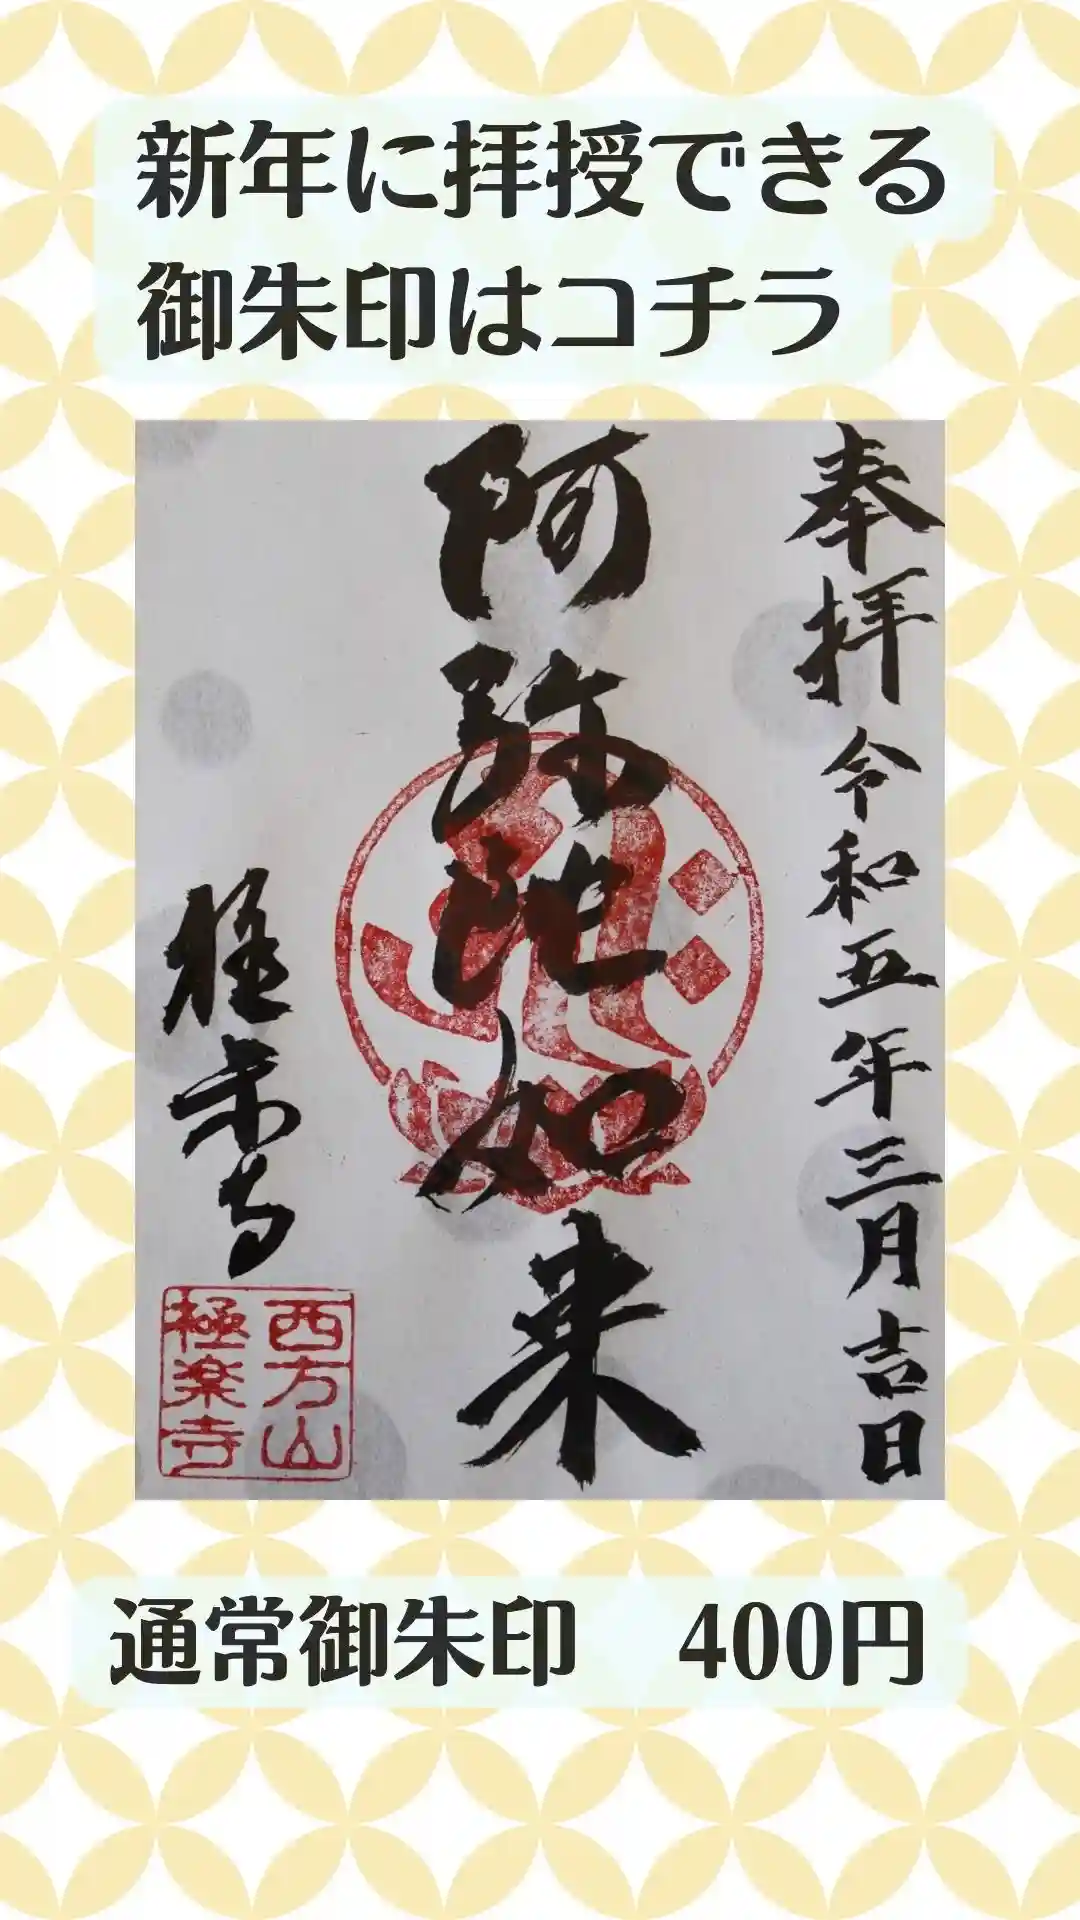 新年に拝授できる
御朱印はコチラ
奉拝 令和五年三月吉日
阿弥陀如来
極楽寺
西方山
極楽寺
通常御朱印 400円